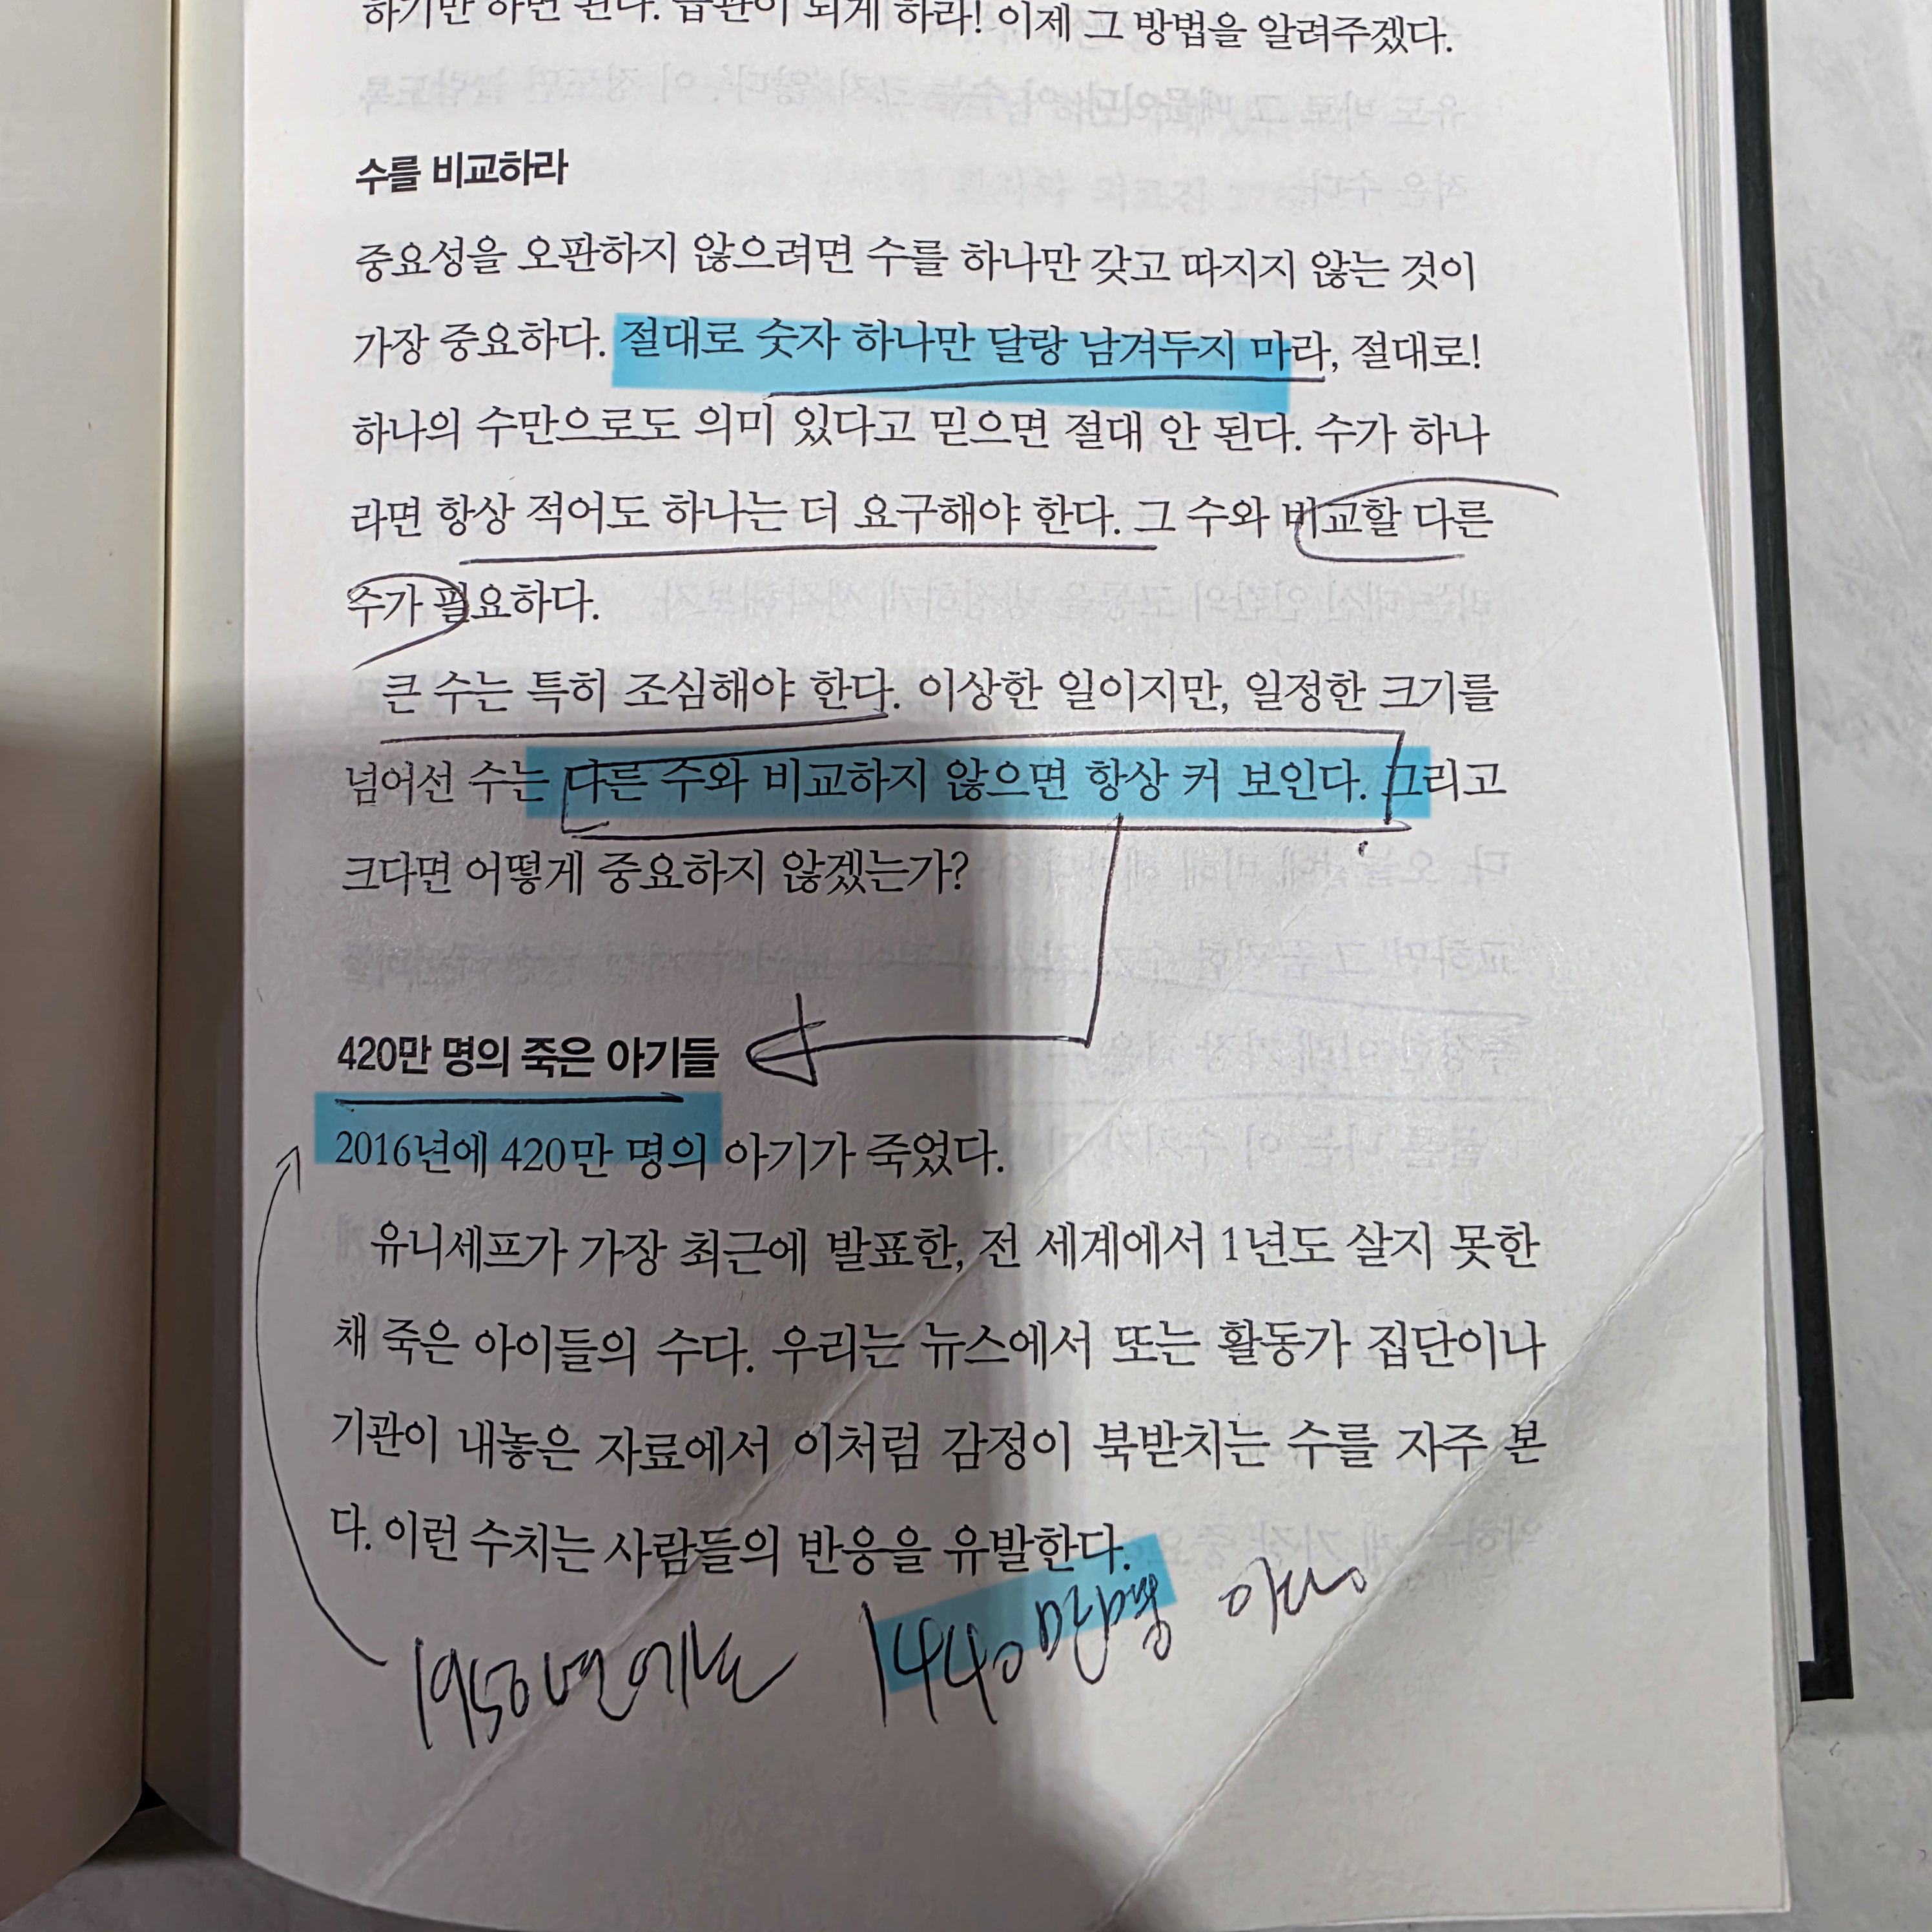 하기만 하면 된다. 습관이 되게 하라! 이제 그 방법을 알려주겠다.
수를 비교하라
중요성을 오판하지 않으려면 수를 하나만 갖고 따지지 않는 것이
가장 중요하다. 절대로 숫자 하나만 달랑 남겨두지 마라, 절대로!
하나의 수만으로도 의미 있다고 믿으면 절대 안 된다. 수가 하나
라면 항상 적어도 하나는 더 요구해야 한다. 그 수와 비교할 다른
수가 필요하다.
큰 수는 특히 조심해야 한다. 이상한 일이지만, 일정한 크기를
넘어선 수는 다른 수와 비교하지 않으면 항상 커 보인다. 그리고
크다면 어떻게 중요하지 않겠는가?
420만 명의 죽은 아기들
2016년에 420만 명의 아기가 죽었다.
유니세프가 가장 최근에 발표한, 전 세계에서 1년도 살지 못한
채 죽은 아이들의 수다. 우리는 뉴스에서 또는 활동가 집단이나
기관이 내놓은 자료에서 이처럼 감정이 북받치는 수를 자주 본
다. 이런 수치는 사람들의 반응을 유발한다.
1950년에는 1440만명